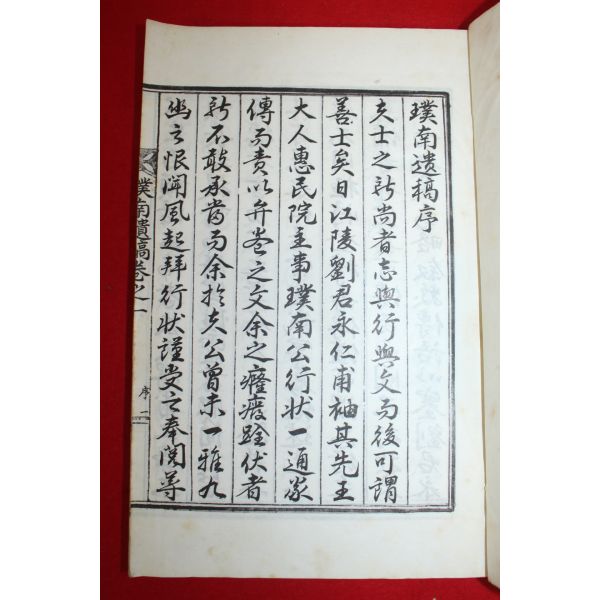 璞南遺稿序
夫士之所尚者志與行與文而後可謂
善士矣日江陵劉君永仁甫袖其先王
大人惠民院主事璞南公行狀一通
傳而責以弁卷之文余之癃癈跧伏者
所不敢承當而余於夫公曾未一雅
幽之恨聞風起拜行狀謹受之奉閱
璞南遺稿卷之一
序 一